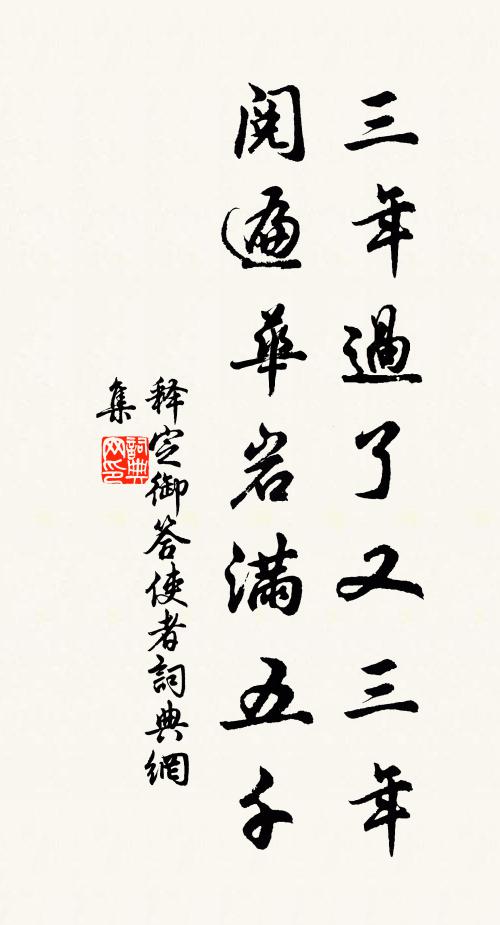 三年過了又三年
閱遍華岩滿五千
释定御答使者詞典網
集
詞典網印